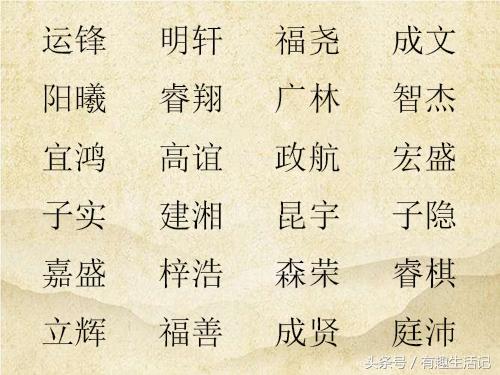 运锋 明轩 福尧 成文
阳曦 睿翔 广林 智杰
宜鸿 高谊 政航 宏盛
子实 建湘 昆宇 子隐
嘉盛 梓浩 森荣 睿棋
立辉 福善 成贤 庭沛
头条号 / 有趣生活记